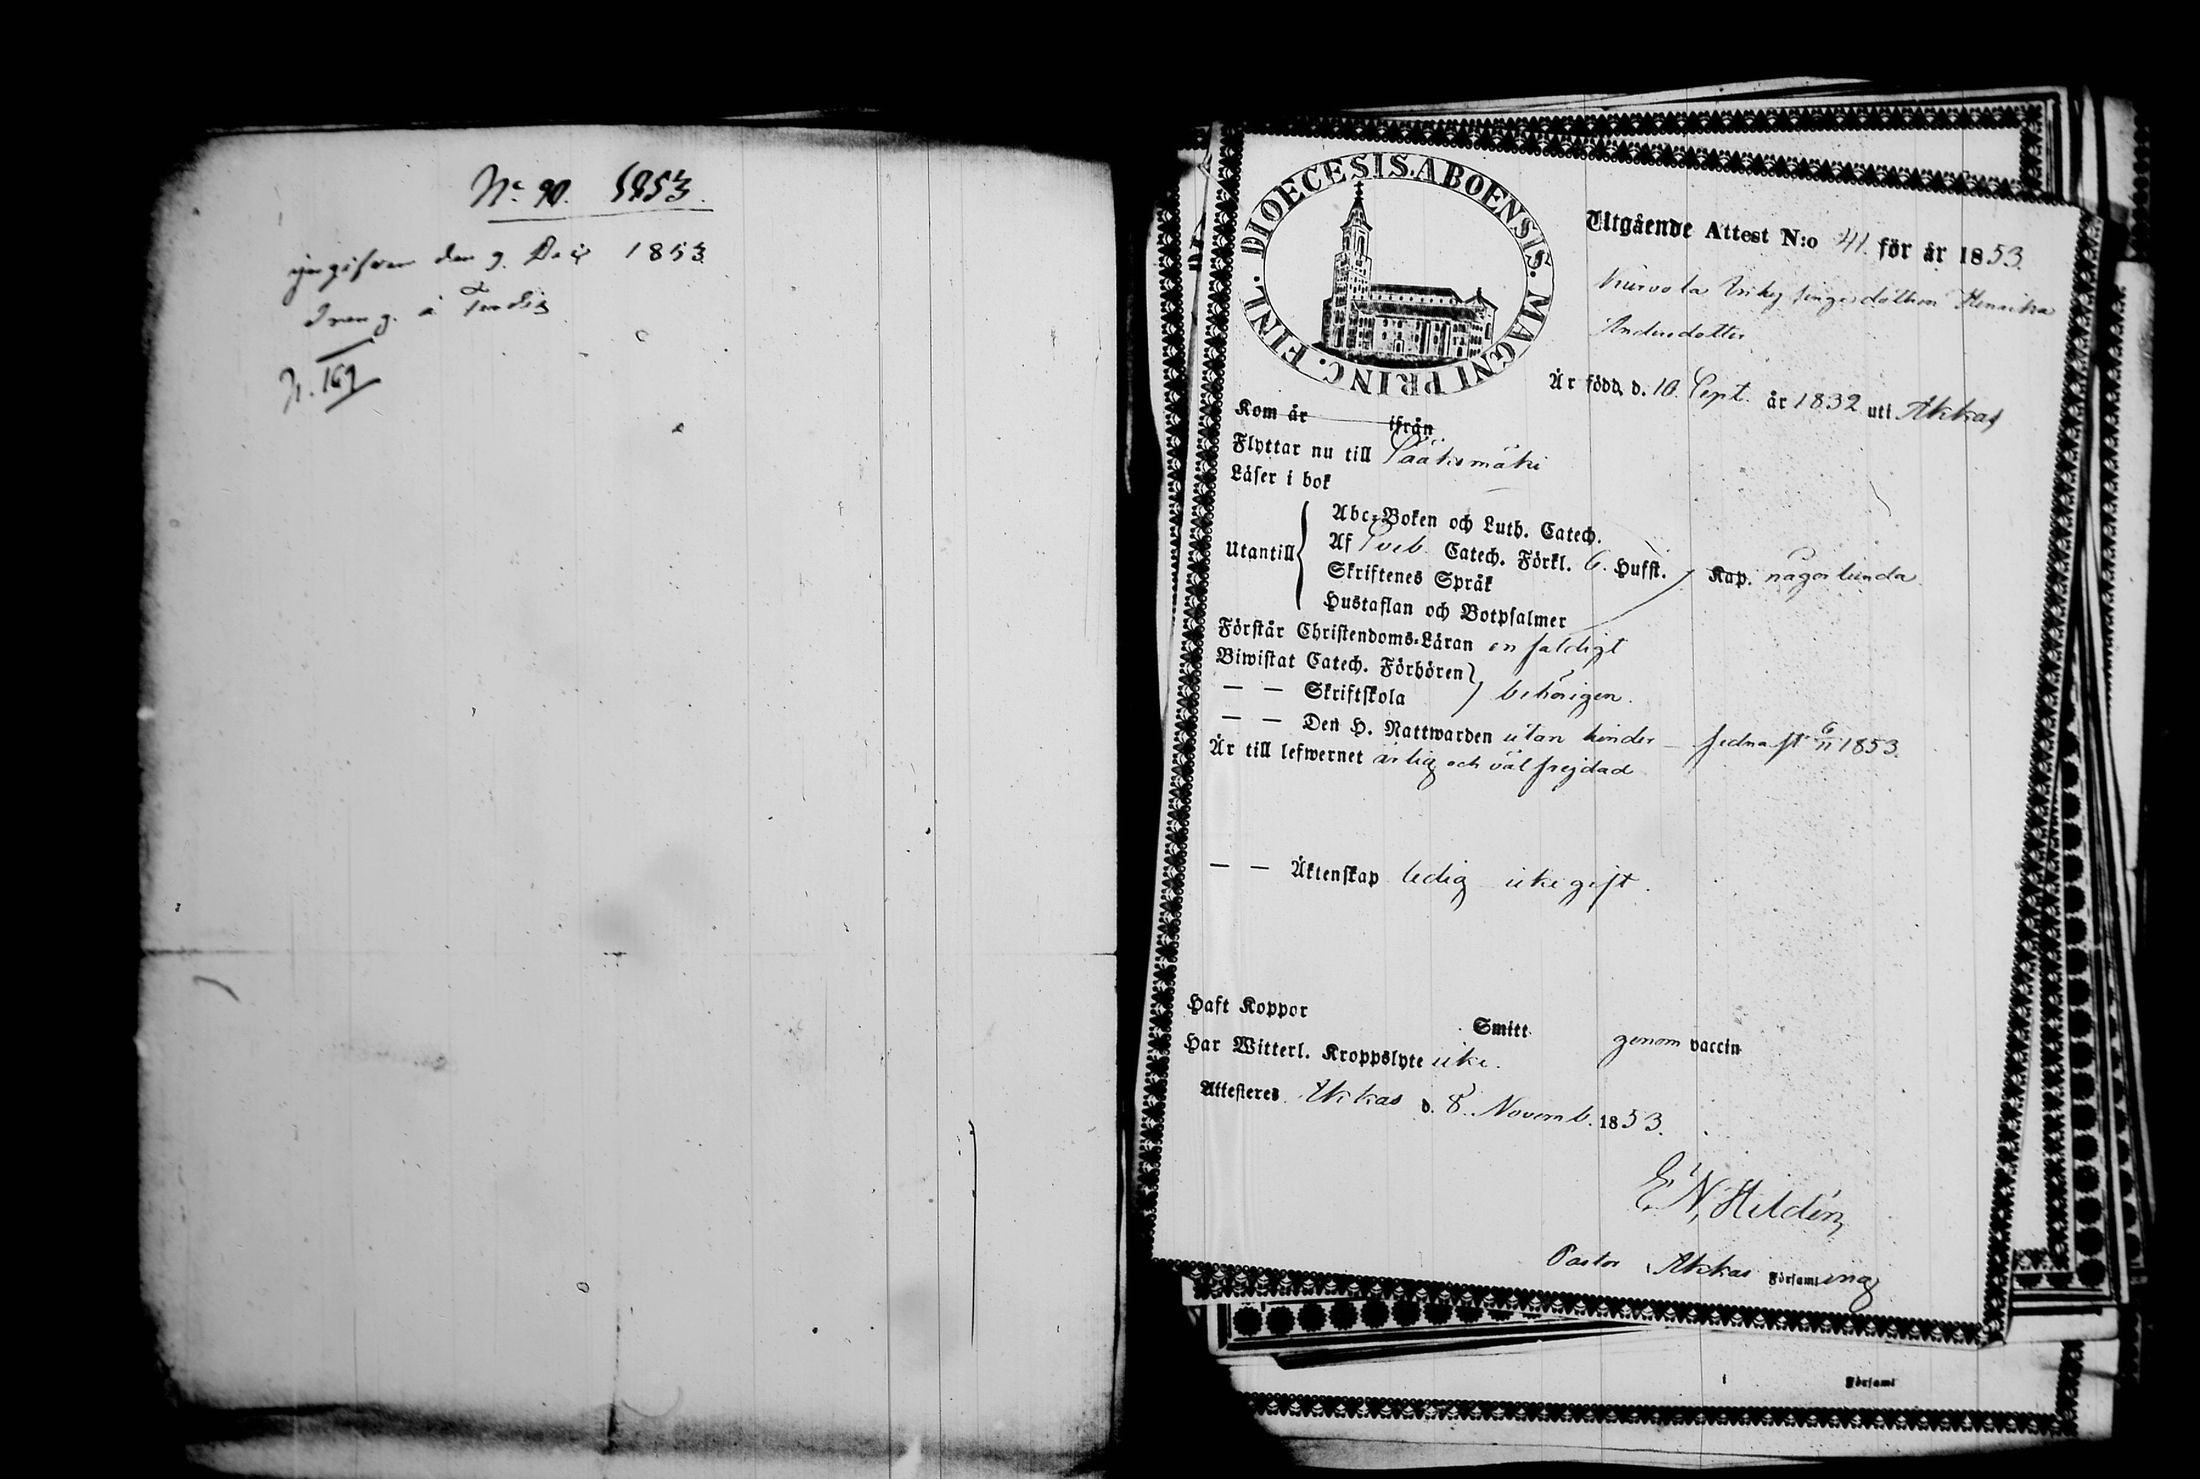 No 90. 1853.
den 9. Dec 1853
N. 169
DIOECESIS. ABOENSIS. MAGNI PRINC. FINL.
Utgående Attest N:o 41. för år 1853.
Henrika
Andersdotter
Är född, d. 10. Sept. år 1832 uti Akkas
Kom år ifrån
Flyttar nu till Sääksmäki
Läser i bok
Utantill
Abc-Boken och Luth. Catech.
Af Sveb. Catech. Förkl. 6. Hufst. Kap. någorlunda.
Skriftenes Språk
Hustaflan och Botpsalmer
Förstår Christendoms-Läran enfaldigt
Biwistat Catech. Förhören
— — Skriftskola behörigen.
— — Den H. Nattwarden utan hinder – sednast 6/11 1853.
Är till lefwernet ärlig och välfrejdad
— — Äktenskap ledig icke gift.
Haft Koppor Smitt genom vaccin
Har Witterl. Kroppslyte icke.
Attesteres Akkas d. 8. Novemb. 1853.
E. N. Hildén
Pastor i Akkas Församling
i Församl